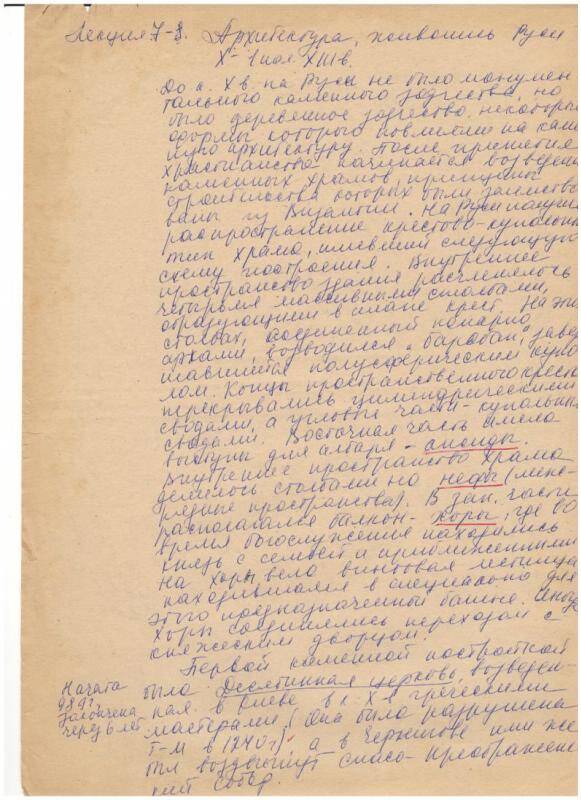 Лекция 7-8. Архитектура, живопись Руси
X - 1 пол. XIII в.
До к. X в. на Руси не было монумен
тального каменного зодчества, но
было деревянное зодчество некоторые
формы которого повлияли на камен
ную архитектуру. После принятия
христианства начинается возведение
каменных храмов, принципы
строительства которых были заимство
ваны из Византии. На Руси получил
распространение крестово-купольный
тип храма, имевший следующую
схему построения. Внутреннее
пространство здания расчленялось
четырьмя массивными столбами,
образующими в плане крест. На этих
столбах, соединенных попарно
арками, возводился "барабан", завер
шавшийся полусферическим купо
лом. Концы пространственного креста
перекрывались цилиндрическими
сводами, а угловые части - купольными
сводами. Восточная часть имела
выступы для алтаря - апсиды.
Внутреннее пространство храма
делилось столбами на нефы (межс-
рядные пространства). В зап. части
располагался балкон - хоры, где во
время богослужения находились
князь с семьей и приближенными
На хоры вела винтовая лестница
находившаяся в специально для
этого предназначенной башне. Иногда
хоры соединялись переходом с
княжеским дворцом.
Первой каменной постройкой
была Десятинная церковь, возведен-
ная в Киеве в к. X в греческими
мастерами. (Она была разрушена
т-м в 1240г), а в Чернигове ими же
был воздвигнут Спасо-Преображенс
кий собор.
Начата
989г.
закончена
через 6 лет